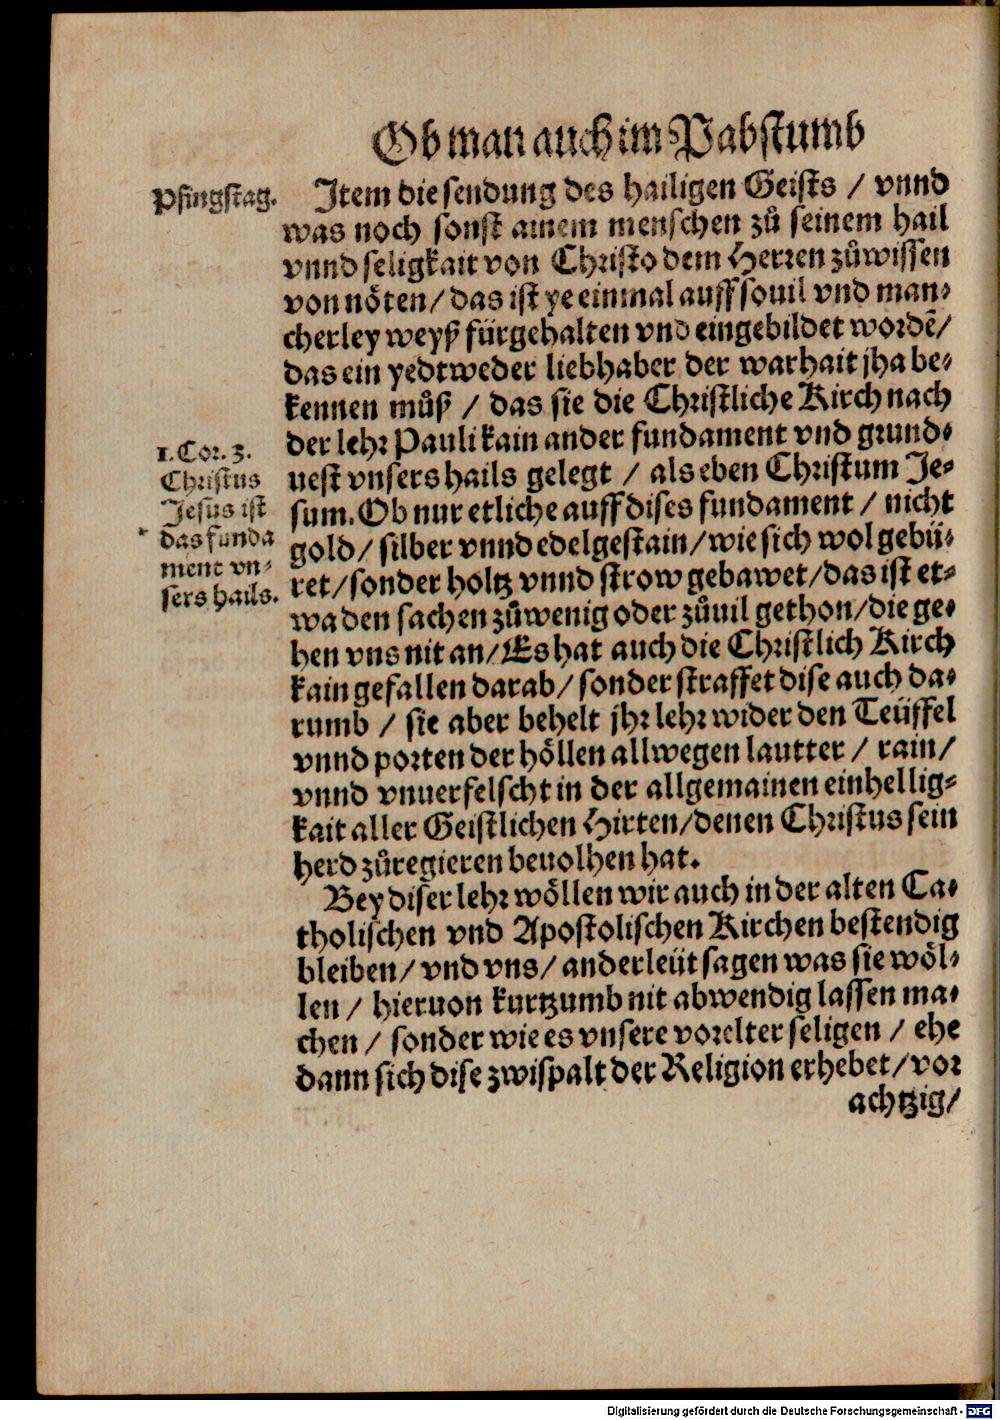 Ob man auch im Pabstumb
Pfingstag.
Item die sendung des hailigen Geists / vnnd
was noch sonst ainem menschen zů seinem hail
vnnd seligkait von Christo dem Herren zůwissen
von nöten / das ist ye einmal auff souil vnd man-
cherley weyß fürgehalten vnd eingebildet wordē /
das ein yedtweder liebhaber der warhait jha be-
kennen můß / das sie die Christliche Kirch nach
der lehr Pauli kain ander fundament vnd grund-
uest vnsers hails gelegt / als eben Christum Je-
sum. Ob nur etliche auff dises fundament / nicht
gold / silber vnnd edelgestain / wie sich wol gebü-
ret / sonder holtz vnnd strow gebawet / das ist et-
wa den sachen zůwenig oder zůuil gethon / die ge-
hen vns nit an / Es hat auch die Christlich Kirch
kain gefallen darab / sonder straffet dise auch da-
rumb / sie aber behelt jhr lehr wider den Teüffel
vnnd porten der höllen allwegen lautter / rain /
vnnd vnuerfelscht in der allgemainen einhellig-
kait aller Geistlichen Hirten / denen Christus sein
herd zůregieren beuolhen hat.
1. Cor. 3.
Christus
Jesus ist
das funda
ment vn-
sers hails.
Bey diser lehr wöllen wir auch in der alten Ca-
tholischen vnd Apostolischen Kirchen bestendig
bleiben / vnd vns / ander leüt sagen was sie wöl-
len / hieruon kurtzumb nit abwendig lassen ma-
chen / sonder wie es vnsere vorelter seligen / ehe
dann sich dise zwispalt der Religion erhebet / vor
achtzig /
Digitalisierung gefördert durch die Deutsche Forschungsgemeinschaft - DFG